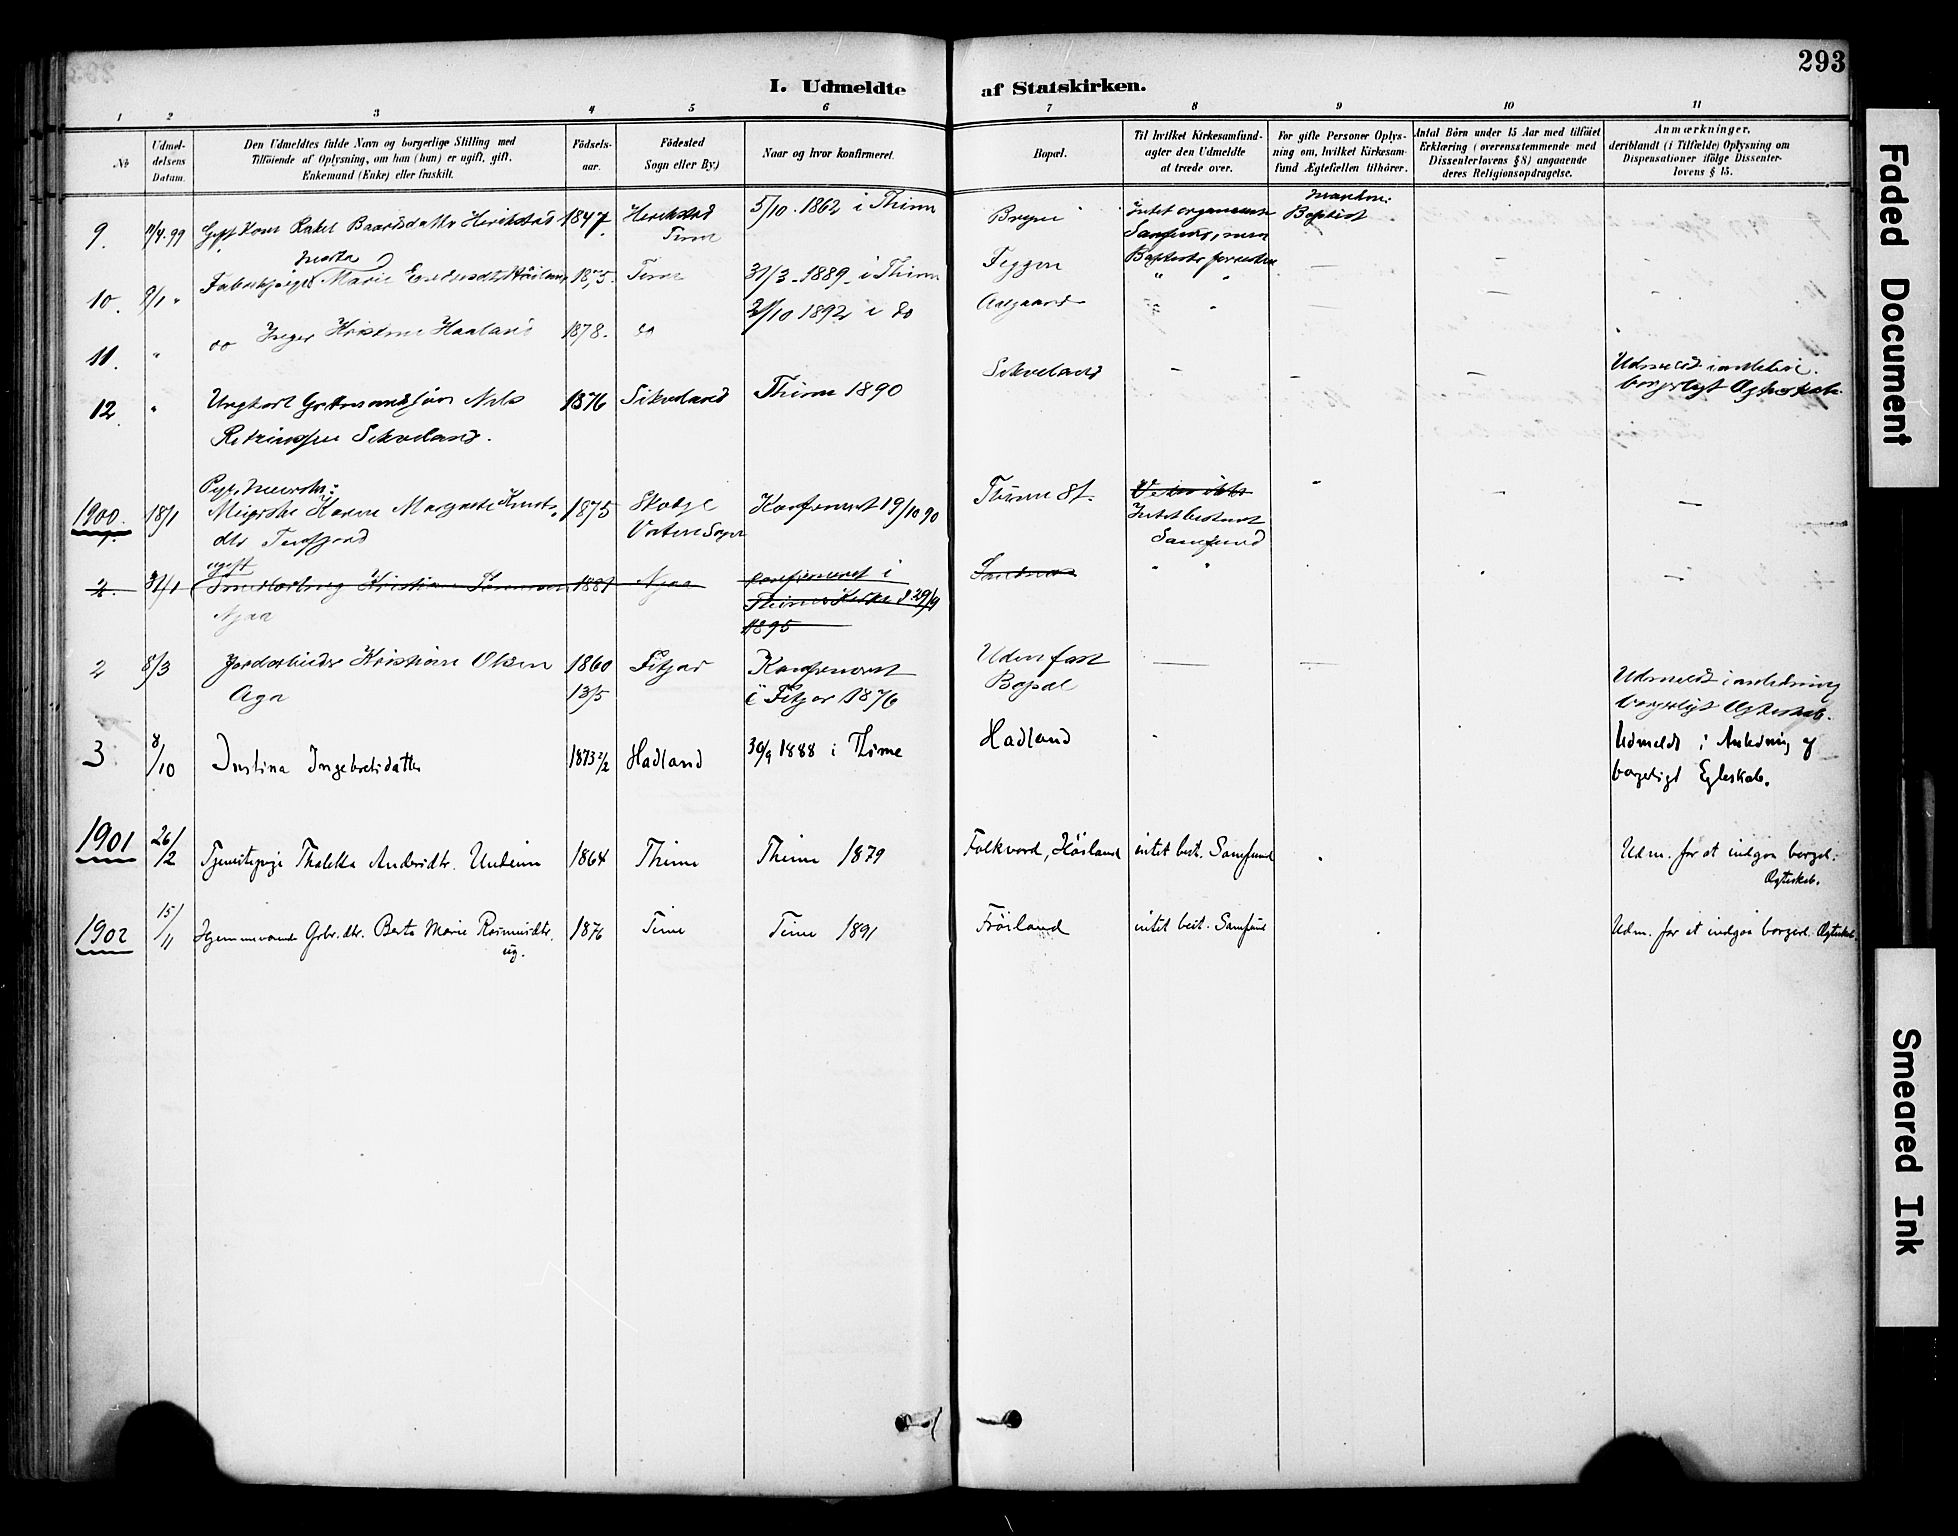 293
I. Udmeldte af Statskirken.
1 2 3 4 5 6 7 8 9 10 11
No
Udmel-
delsens
Datum.
Den Udmeldtes fulde Navn og borgerlige Stilling med
Tilföiende af Oplysning, om han (hun) er ugift, gift,
Enkemand (Enke) eller fraskilt.
Födsels-
aar.
Födested
Sogn eller By.)
Naar og hvor konfirmeret.
Bopæl.
Til hvilket Kirkesamfund
agter den Udmeldte
at træde over.
For gifte Personer Oplys-
ning om, hvilket Kirkesam-
fund Ægtefællen tilhörer.
Antal Börn under 15 Aar med tilföiet
Erklæring (overensstemmende med
Dissenterlovens § 8) angaaende
deres Religionsopdragelse.
Anmærkninger,
deriblandt (i Tilfælde) Oplysning om
Dispensationer ifölge Dissenter-
lovens § 15.
9. 11/4.99 Gift Kone Rakel Baardsdatter Herikstad 1847. Herikstad 5/10. 1862 i Thime Bryne Intet organiseret Manden:
Time Samfund, men Baptist
Marta Baptisterforeden
10. 9/1 " Fabrikpige Marie 1875. Time 31/3. 1889. i Thime " "
11. " do Inger Kristine Haaland 1878. do 2/10 1892 i do Aalgaard " "
12. " Ungkarl Nils 1876 Sikveland Thime 1890 Sikveland — — — Udmeldt
Sikveland. borgerligt Ægteskab.
1900. 18/1 Meierske Karen Margrete Knuts- 1875 Skodje Konfirmeret 19/10 90 Thime St.
dtr Vatne Sogn Intet bestemt
Samfund
ugift
2. 31/1 Kristian 1881 Njaa konfirmeret i Sandnes " "
Njaa Thime Kirke d 29/9
1895
2 8/3 Jordarbeider Kristian Olsen 1860 Fitjar Konfirmeret Uden fast — —
Aga 13/5 i Fitjar 1876 Bopæl Udmeldt i anledning
borgerligt Ægteskab.
3 8/10 Justina Ingebretsdatter 1873 2/2 Hadland 30/9 1888 i Thime Hadland " Udmeldt i Anledning af
borgeligt Egteskab.
1901 26/2 Tjenestepige Thaletta Andersdtr. Undeim 1864 Thime Thime 1879 Folkvord, Höiland intet best. Samfund Udm. for at indgaa borgel.
Ægteskab.
1902 15/11 Hjemmeværende Grbr.dtr. Berta Marie Rasmusdtr. 1876 Time Time 1891 Fröiland intet best. Samfund Udm. for at indgaa borgerl. Ægteskab.
ug.
Faded Document
Smeared Ink